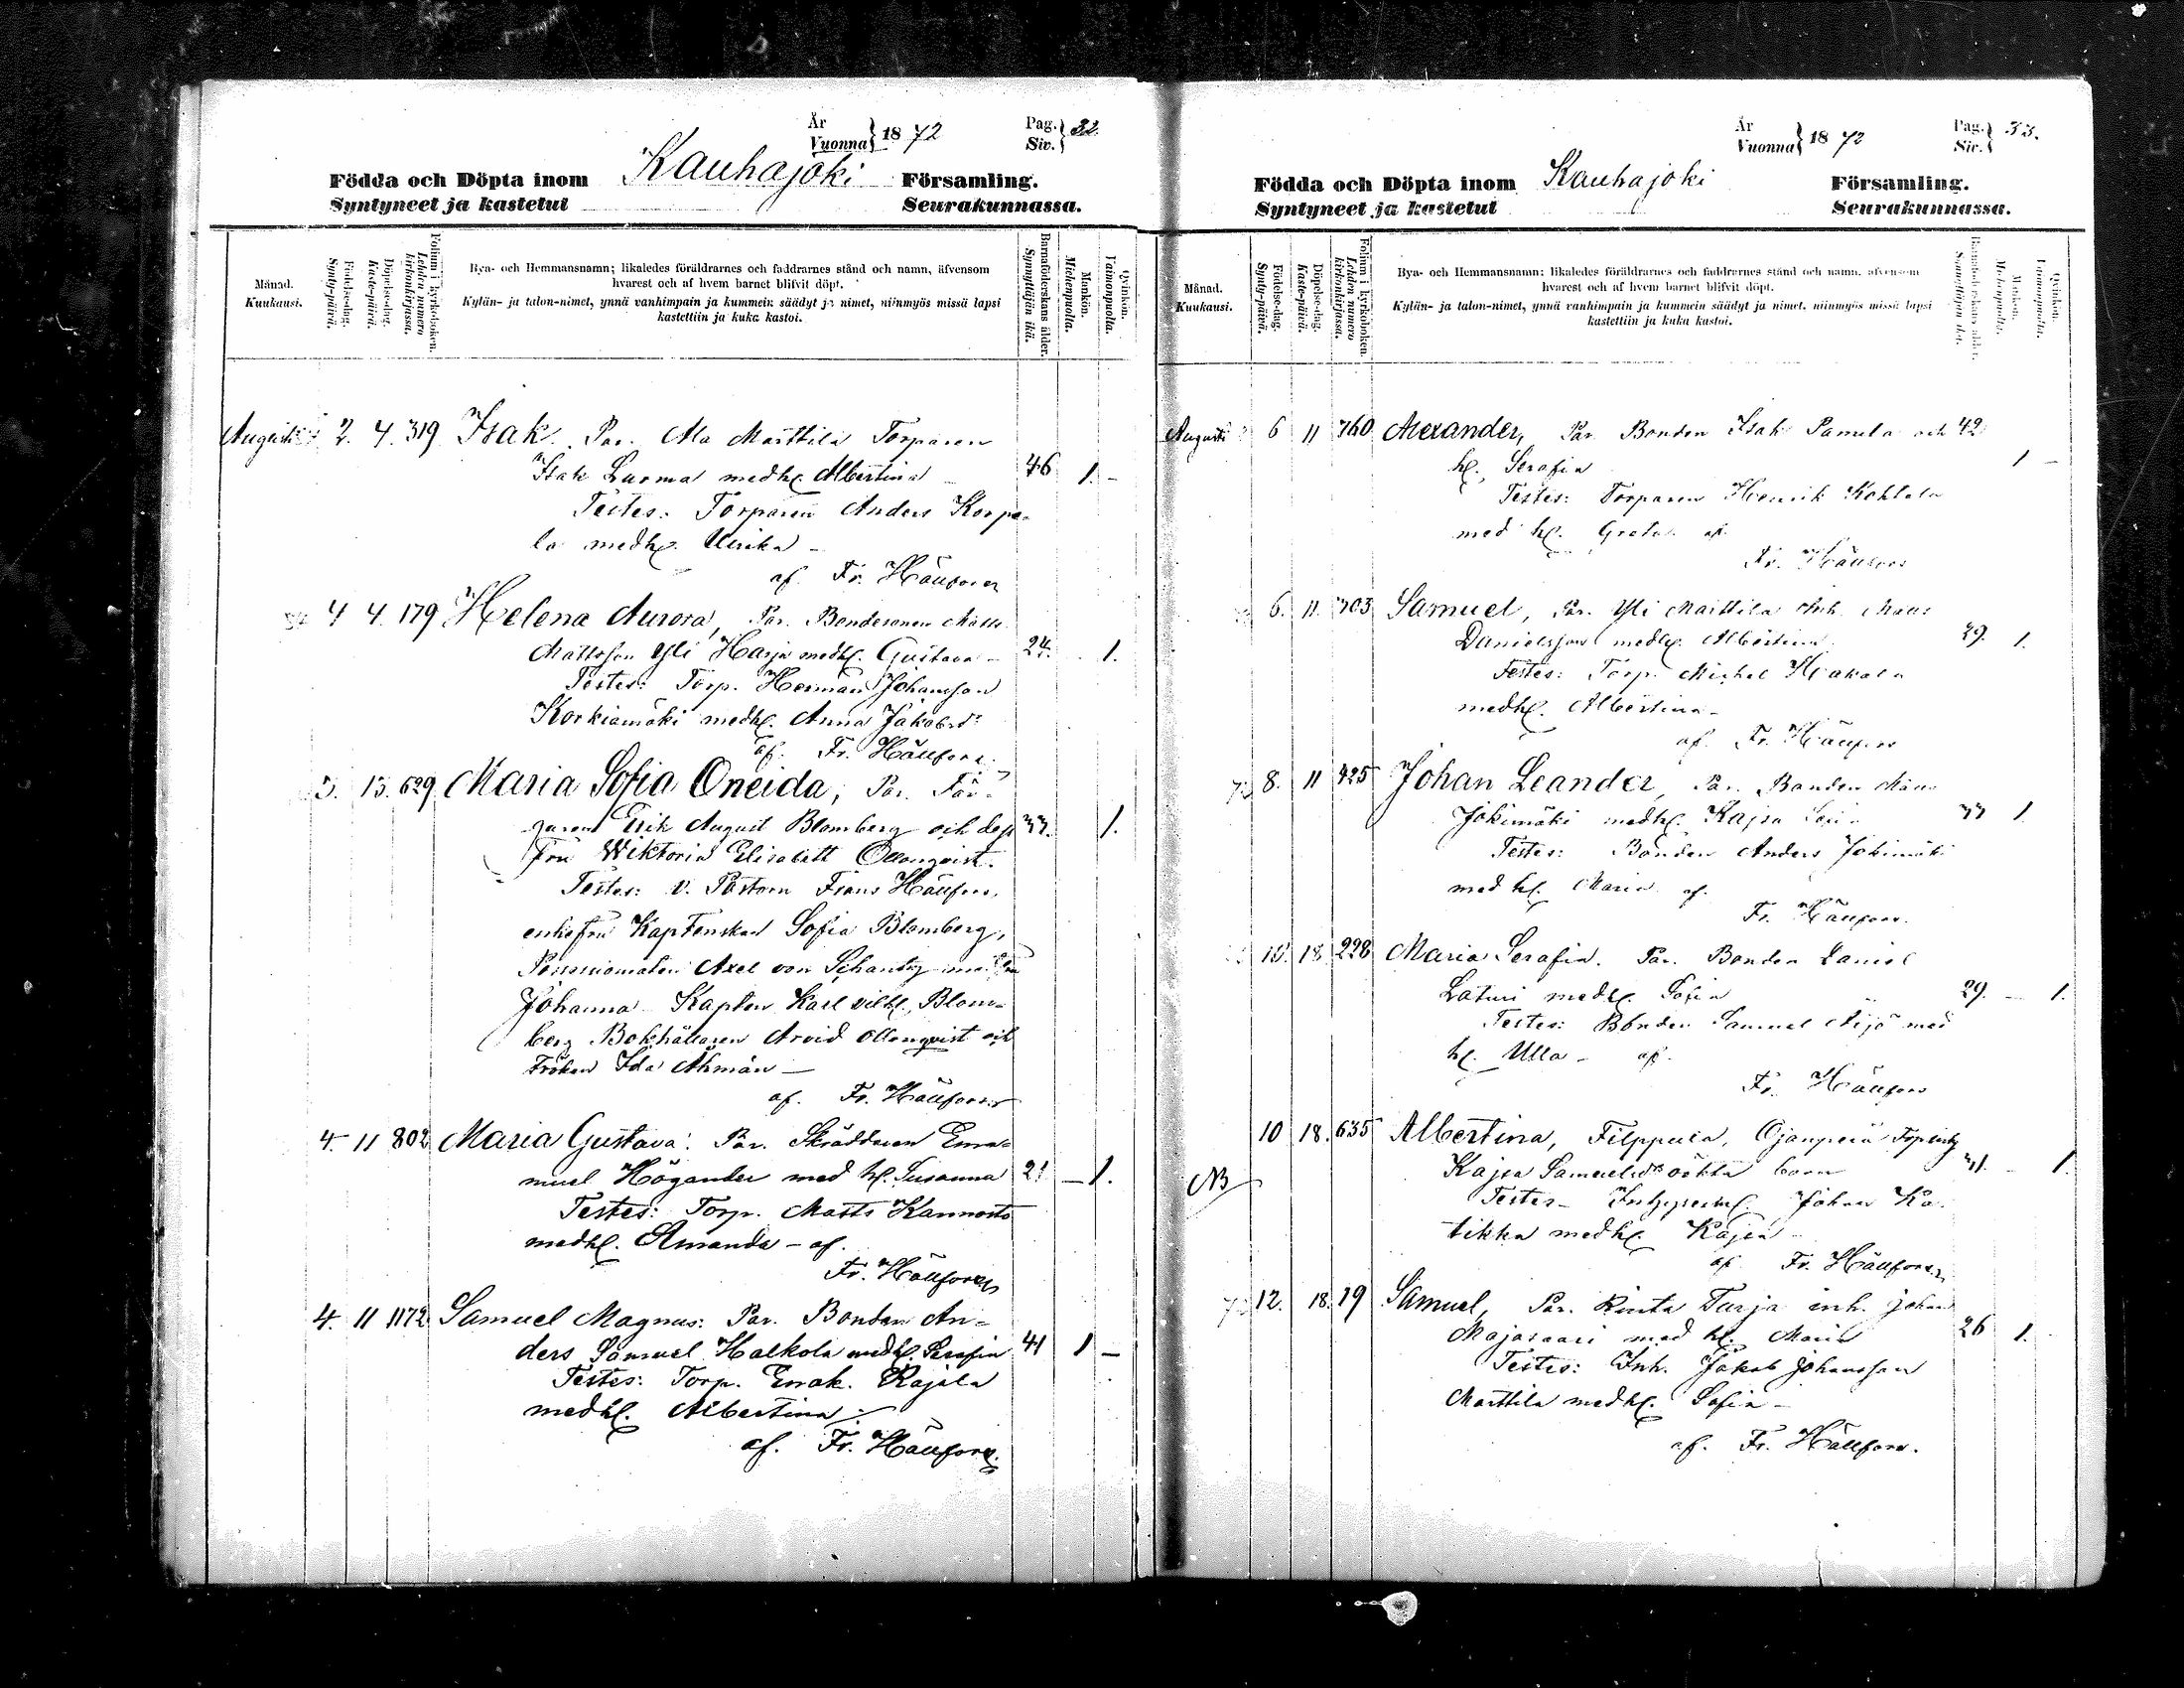 År
Vuonna} 1872
Pag.
Siv.} 32.
Födda och Döpta inom Kauhajoki Församling.
Syntyneet ja kastetut Seurakunnassa.
Månad.
Kuukausi.
Födelse-dag.
Synty-päivä.
Döpelse-dag.
Kaste-päivä.
Folium i kyrkoboken.
Lehden numero
kirkonkirjassa.
Bya- och Hemmansnamn; likaledes föräldrarnes och faddrarnes stånd och namn, äfvensom
hvarest och af hvem barnet blifvit döpt.
Kylän- ja talon-nimet, ynnä vanhimpain ja kummein säädyt ja nimet, niinmyös missä lapsi
kastettiin ja kuka kastoi.
Barnaföderskans ålder.
Synnyttäjän ikä.
Mankön.
Miehenpuolta.
Qvinkön.
Vaimonpuolta.
Augusti 2. 4. 319 Isak. Par. Ala Marttila Torparen
Isak Luoma medh. Albertina 46 1. -
Testes: Torparen Anders Korpe-
la medh. Ulrika -
af. Fr. Hällfors
4 4. 179 Helena Aurora, Par. Bondesonen Matts
Mattsson Yli Harja medh. Gustava - 24. 1.
Testes: Torp. Herman Johansson
Korkiamäki medh. Anna Jakobsdr
af. Fr. Hällfors.
3. 13. 629 Maria Sofia Oneida, Par. Fär-
garen Erik August Blomberg och dess 33. 1.
fru Wiktoria Elisabett Ollonqvist.
Testes: v. Pastorn Frans Hällfors,
enkefru Kaptenskan Sofia Blomberg,
Axel von Schantz med fru
Johanna Kapten Karl Blom-
berg Bokhållaren Arvid Ollonqvist och
Fröken Ida Åhman -
af. Fr. Hällfors
4. 11 802 Maria Gustava: Par. Skräddaren Ema-
nuel Högander med h. Susanna 21 - 1.
Testes: Torp. Matts Kannosto
medh. Amanda - af.
Fr. Hällfors
4. 11 1172 Samuel Magnus: Par. Bonden An-
ders Samuel Halkola medh. Serafia 41 1 -
Testes: Torp. Enok. Rajala
medh. Albertina.
af. Fr. Hällfors.
År
Vuonna} 1872
Pag.
Siv.} 33.
Födda och Döpta inom Kauhajoki Församling.
Syntyneet ja kastetut Seurakunnassa.
Månad.
Kuukausi.
Födelse-dag.
Synty-päivä.
Döpelse-dag.
Kaste-päivä.
Folium i kyrkoboken.
Lehden numero
kirkonkirjassa.
Bya- och Hemmansnamn; likaledes föräldrarnes och faddrarnes stånd och namn, äfvensom
hvarest och af hvem barnet blifvit döpt.
Kylän- ja talon-nimet, ynnä vanhimpain ja kummein säädyt ja nimet, niinmyös missä lapsi
kastettiin ja kuka kastoi.
Barnaföderskans ålder.
Synnyttäjän ikä.
Mankön.
Miehenpuolta.
Qvinkön.
Vaimonpuolta.
Augusti 6 11 760 Alexander, Par. Bonden Isak Panula och 42
h. Serafia 1 -
Testes: Torparen Henrik Kohtala
med h. Greta af.
Fr. Hällfors
6. 11. 303 Samuel, Par. Yli Marttila Inh. Matts
Danielsson medh. Albertina 29. 1.
Testes: Torp. Michel Hakala
medh. Albertina -
af. Fr. Hällfors
8. 11 425 Johan Leander, Par. Bonden Matts
Jokimäki medh. Kajsa 33 1
Testes: Bonden Anders Jokimäki
med h. Maria af.
Fr. Hällfors.
15. 18 228 Maria Serafia. Par. Bonden Daniel
Laturi medh. Sofia 29. - 1.
Testes: Bonden Samuel Äijö med
h. Ulla - af.
Fr. Hällfors
10 18. 635 Albertina, Filppula, Ojanperä
NB Kajsa Samuelsdr oäkta barn 31. - 1.
Testes - Johan Kä-
tikka medh. Kajsa -
af Fr. Hällfors
12. 18. 19 Samuel, Par. Rinta Turja inh. Johan
Majasaari med h. Maria 26 1.
Testes: Inh. Jakob Johansson
Marttila medh. Sofia -
af. Fr. Hällfors.